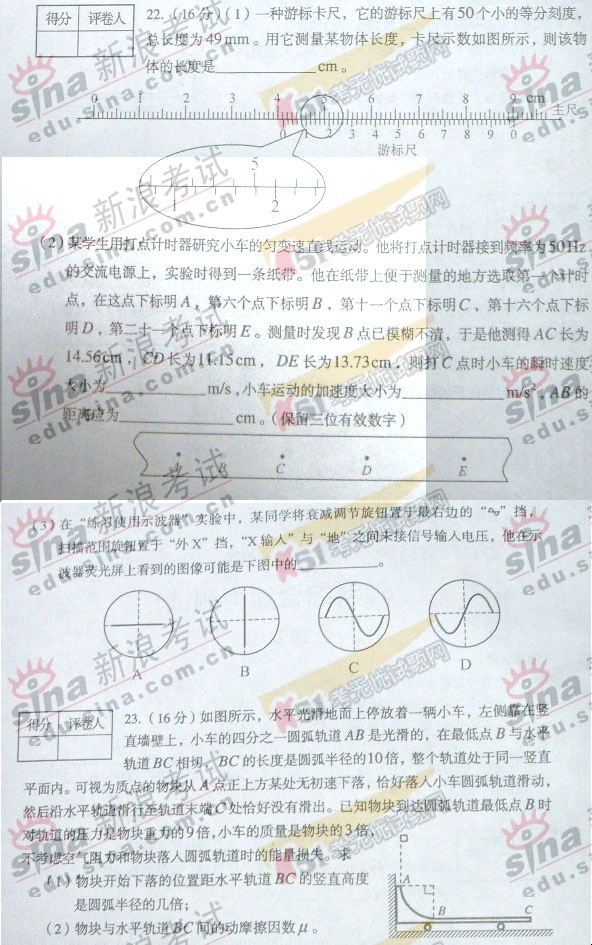 得分 评卷人
22.(16分)(1)一种游标卡尺,它的游标尺上有50个小的等分刻度,
总长度为49mm。用它测量某物体长度,卡尺示数如图所示,则该物
体的长度是 cm。
0 1 2 3 4 5 6 7 8 9 cm
主尺
0 1 2 3 4 5 6 7 8 9 0
游标尺
5
2
(2)某学生用打点计时器研究小车的匀变速直线运动。他将打点计时器接到频率为50Hz
的交流电源上,实验时得到一条纸带。他在纸带上便于测量的地方选取第一个计时
点,在这点下标明A,第六个点下标明B,第十一个点下标明C,第十六个点下标
明D,第二十一个点下标明E。测量时发现B点已模糊不清,于是他测得AC长为
14.56cm,CD长为11.15cm,DE长为13.73cm,则打C点时小车的瞬时速度
大小为 m/s,小车运动的加速度大小为 m/s²,AB的
距离应为 cm。(保留三位有效数字)
A B C D E
(3)在“练习使用示波器”实验中,某同学将衰减调节旋钮置于最右边的“∿”挡,
扫描范围旋钮置于“外X”挡,“X输入”与“地”之间未接信号输入电压,他在示
波器荧光屏上看到的图像可能是下图中的 。
A B C D
得分 评卷人
23.(16分)如图所示,水平光滑地面上停放着一辆小车,左侧靠在竖
直墙壁上,小车的四分之一圆弧轨道AB是光滑的,在最低点B与水平
轨道BC相切,BC的长度是圆弧半径的10倍,整个轨道处于同一竖直
平面内。可视为质点的物块从A点正上方某处无初速下落,恰好落入小车圆弧轨道滑动,
然后沿水平轨道滑行至轨道末端C处恰好没有滑出。已知物块到达圆弧轨道最低点B时
对轨道的压力是物块重力的9倍,小车的质量是物块的3倍,
不考虑空气阻力和物块落入圆弧轨道时的能量损失。求
(1)物块开始下落的位置距水平轨道BC的竖直高度
是圆弧半径的几倍;
(2)物块与水平轨道BC间的动摩擦因数μ。
A
B
C
sina 新浪考试
edu.sina.com.cn